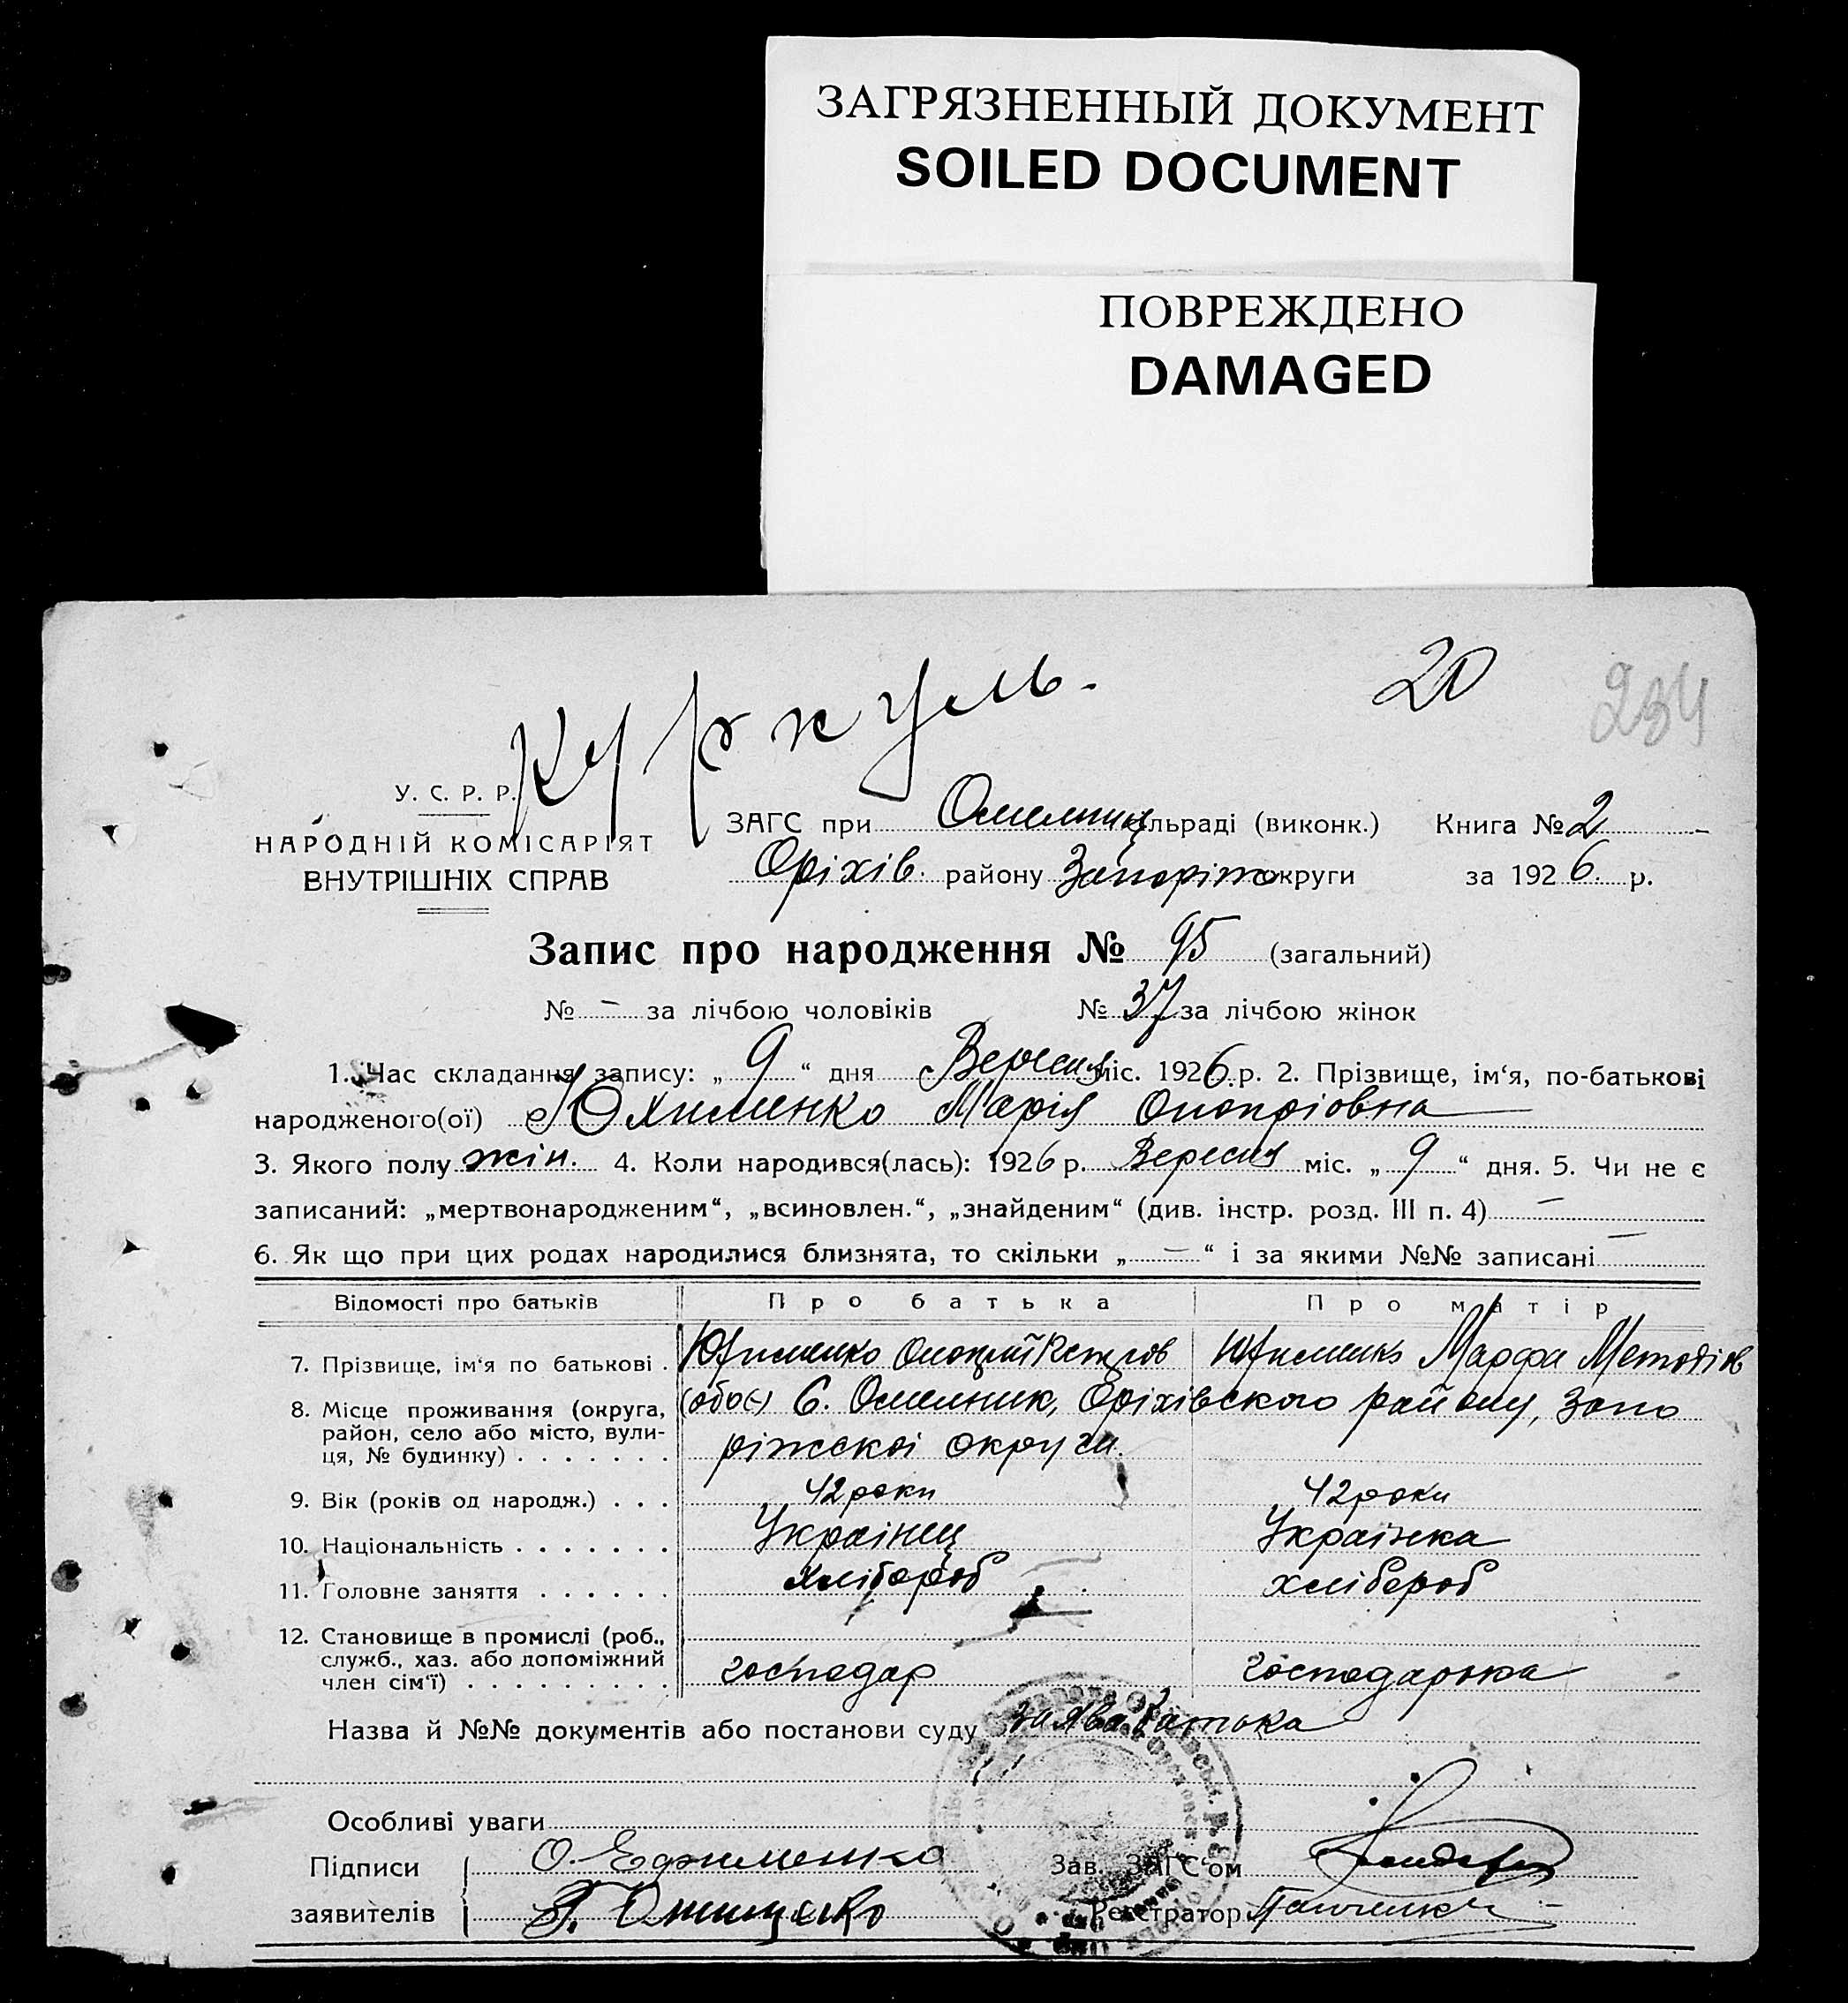 ЗАГРЯЗНЕННЫЙ ДОКУМЕНТ
SOILED DOCUMENT
ПОВРЕЖДЕНО
DAMAGED
20
234
куркуль.
У. С. Р. Р.
НАРОДНІЙ КОМІСАРІЯТ
ВНУТРІШНІХ СПРАВ
ЗАГС при Омельниц льраді (виконк.) Книга № 2
Оріхів. району Запоріж округи за 1926. р.
Запис про народження № 95 (загальний)
№ – за лічбою чоловіків № 37 за лічбою жінок
1. Час складання запису: „ 9 “ дня Вересня міс. 1926.р. 2. Прізвище, ім‘я, по-батькові
народженого(ої) Юхименко Марія Онопріовна
3. Якого полу жін. 4. Коли народився(лась): 1926 р. Вересня міс. „ 9 “ дня. 5. Чи не є
записаний: „мертвонародженим“, „всиновлен.“, „знайденим“ (див. інстр. розд. III п. 4) –
6. Як що при цих родах народилися близнята, то скільки „ – “ і за якими №№ записані –
Відомості про батьків Про батька Про матір
7. Прізвище, ім‘я по батькові . Юхименко Юхименко Марфа Методіов
8. Місце проживання (округа, район, село або місто, вулиця, № будинку) (обоє) С. Омельник, Оріхівского району, Запо
ріжскої округи
9. Вік (років од народж.) . . . 42 роки 42 роки
10. Національність . . . . . . . Українец Українка
11. Головне заняття . . . . . . хлібороб хлібороб
12. Становище в промислі (роб.,
служб., хаз. або допоміжний
член сім‘ї) . . . . . . . . . господар господарька
Назва й №№ документів або постанови суду заява батька
Особливі уваги
Підписи О. Ефименко Зав. ЗАГС‘ом
заявителів Реєстратор